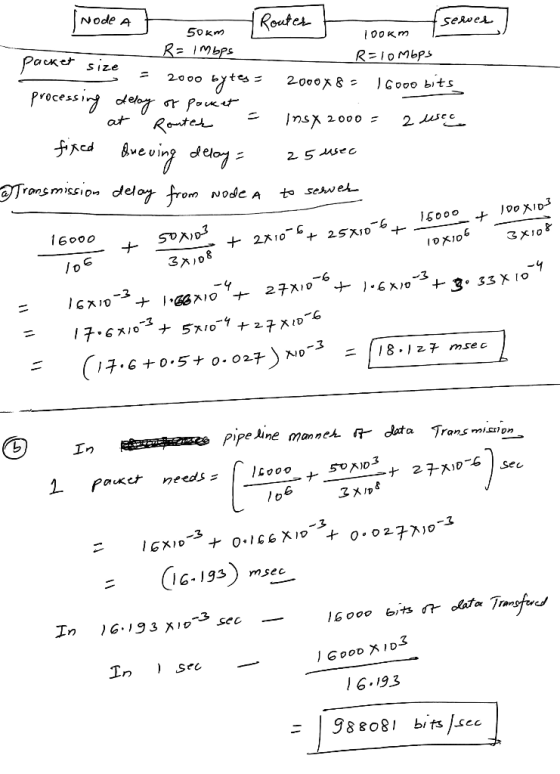 Node A
Router
server
50km
100km
R= 1Mbps
R=10Mbps
packet size = 2000 bytes = 2000×8 = 16000 bits
processing delay of packet
at Router = 1ns× 2000 = 2 usec
fixed Queuing delay = 25usec
(a) Transmission delay from Node A to server
16000/10^6 + 50×10^3/3×10^8 + 2×10^-6 + 25×10^-6 + 16000/10×10^6 + 100×10^3/3×10^8
= 16×10^-3 + 1.66×10^-4 + 27×10^-6 + 1.6×10^-3 + 3.33×10^-4
= 17.6×10^-3 + 5×10^-4 + 27×10^-6
= (17.6+0.5+0.027) ×10^-3 = 18.127 msec
(b) In pipeline manner of data Transmission
1 packet needs = [16000/10^6 + 50×10^3/3×10^8 + 27×10^-6] sec
= 16×10^-3 + 0.166×10^-3 + 0.027×10^-3
= (16.193) msec
In 16.193×10^-3 sec — 16000 bits of data Transfered
In 1 sec — 16000×10^3/16.193
= 988081 bits/sec